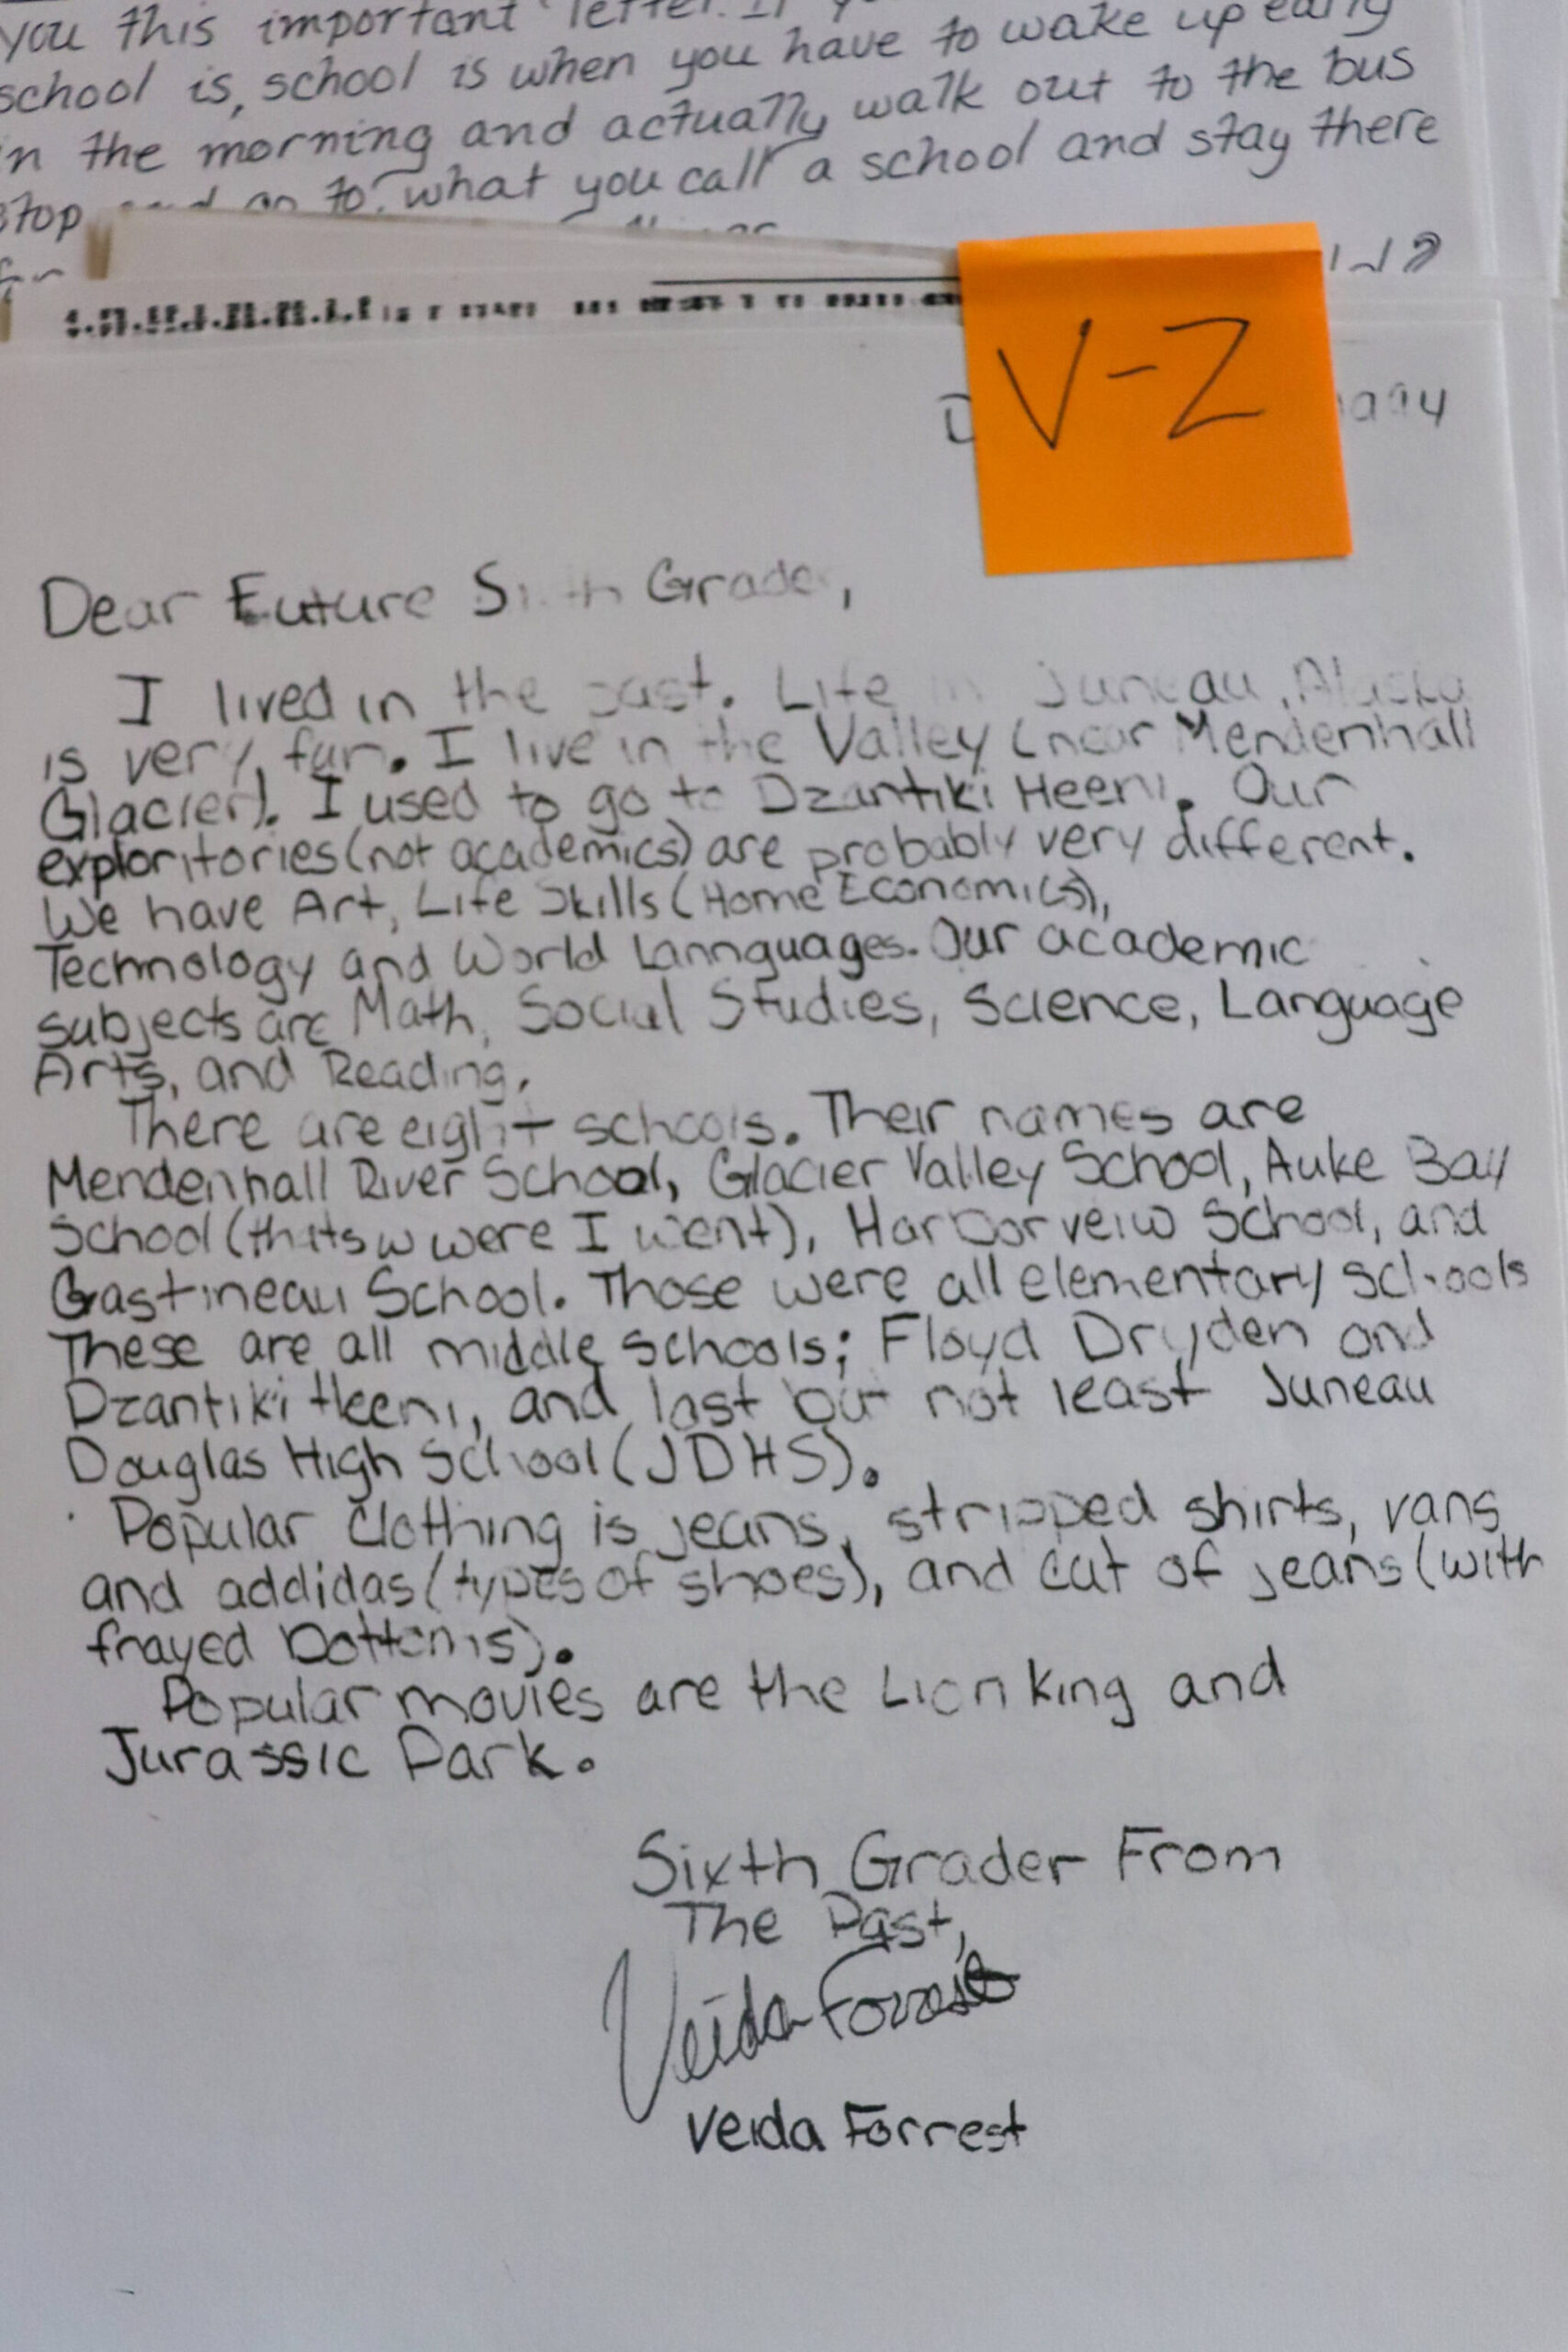 you this important letter. If
school is, school is when you have to wake up early
in the morning and actually walk out to the bus
stop and go to what you call a school and stay there
V-Z
Dear Future Sixth Grader,
I lived in the past. Life in Juneau, Alaska
is very, fun. I live in the Valley (near Mendenhall
Glacier). I used to go to Dzantiki Heeni. Our
exploritories (not academics) are probably very different.
We have Art, Life Skills (Home Economics),
Technology and World Lannguages. Our academic
subjects are Math, Social Studies, Science, Language
Arts, and Reading.
There are eight schools. Their names are
Mendenhall River School, Glacier Valley School, Auke Bay
School (thats w were I went), Harborveiw School, and
Gastineau School. Those were all elementary schools
These are all middle schools; Floyd Dryden and
Dzantiki Heeni, and last but not least Juneau
Douglas High School (JDHS).
Popular clothing is jeans, stripped shirts, vans
and addidas (types of shoes), and cut of jeans (with
frayed bottoms).
Popular movies are the Lion King and
Jurassic Park.
Sixth Grader From
The Past,
Veida Forrest
Veida Forrest